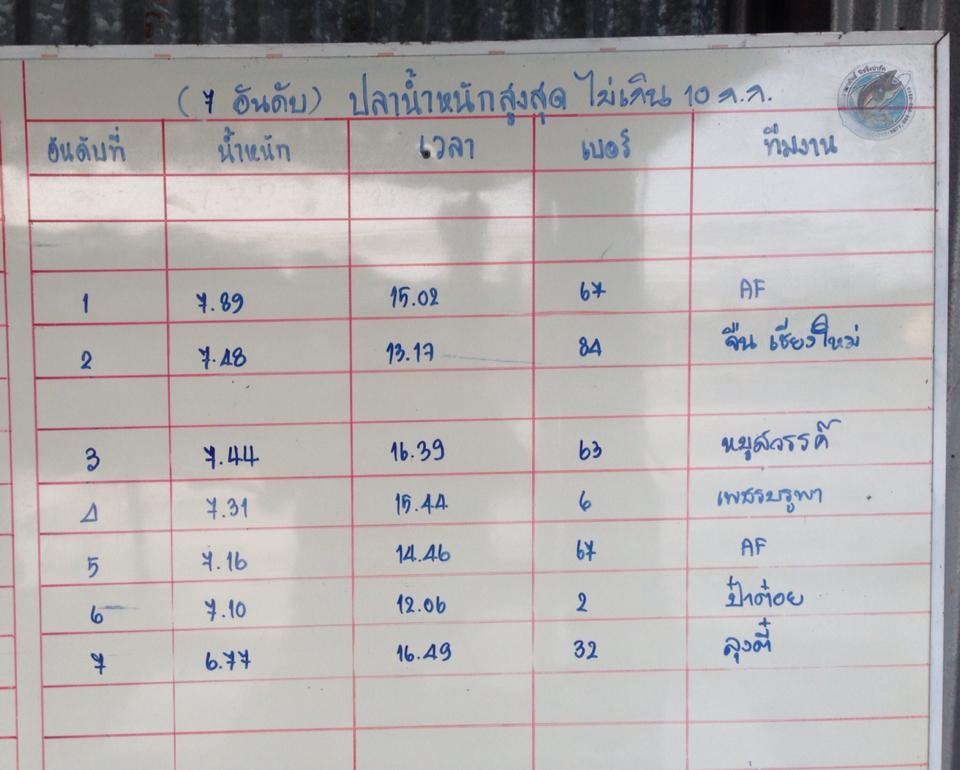 (7 อันดับ) ปลาน้ำหนักสูงสุด ไม่เกิน 10 ก.ก.
อันดับที่ น้ำหนัก เวลา เบอร์ ทีมงาน
1 7.89 15.02 67 AF
2 7.48 13.17 84 จีน เชียงใหม่
3 7.44 16.39 63 หมูสวรรค์
4 7.31 15.44 6 เพชรบูรพา
5 7.16 14.46 67 AF
6 7.10 12.06 2 ป๋าต๋อย
7 6.77 16.49 32 ลุงตี๋